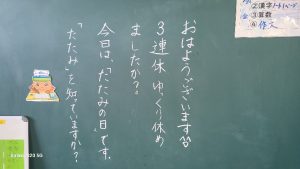 おはようございます
3連休ゆっくり休め
ましたか?
今日は、「たたみの日」です。
「たたみ」を知っていますか?
②漢字ノート
③算数
④作文